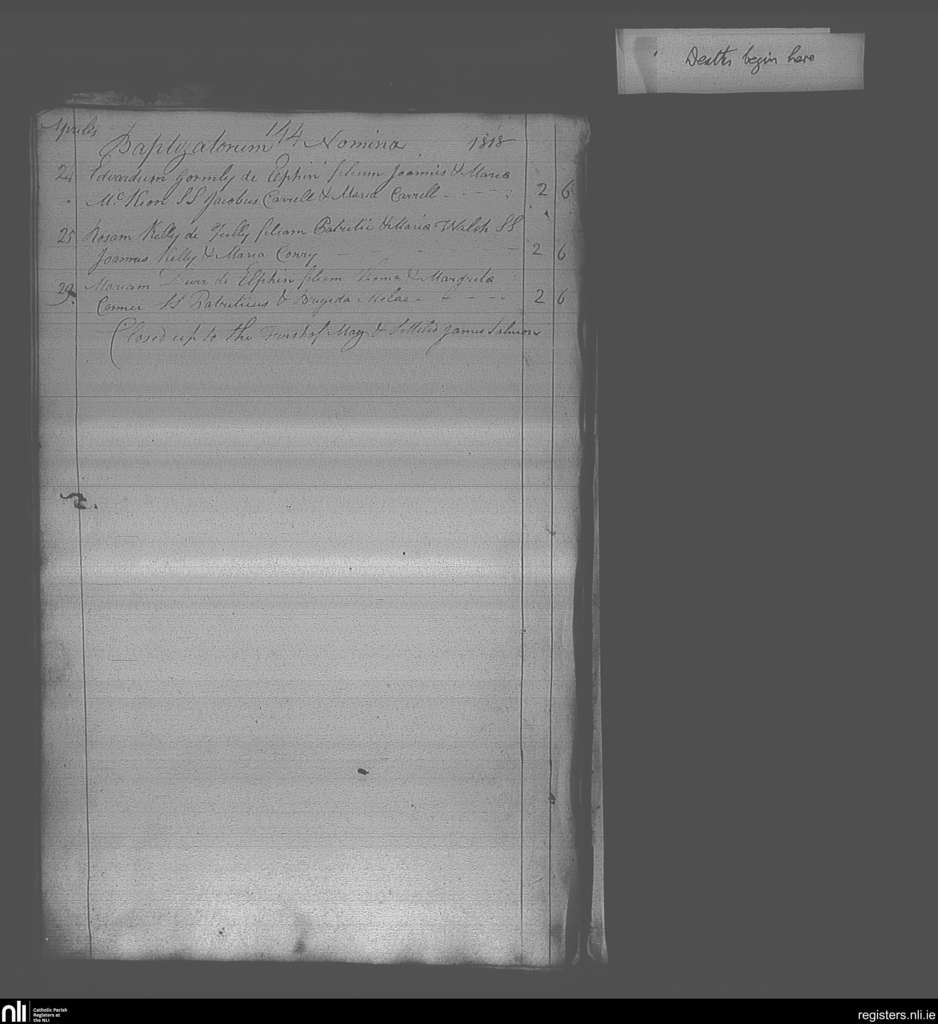 Deaths begin here
Aprilis
Baptizatorum 144 Nomina 1818
24 Edvardum Gormly de Elphin filium Joannis & Maria
Mc Keon SS Jacobus Carrell & Maria Carrell 2 6
25 Rosam Kelly de filiam Patritii & Maria Walsh SS
Joannes Kelly & Maria Conry 2 6
29 Mariam de Elphin filiam & Margrita
Conner SS Patriticus & Brigida 2 6
Closed up to the First of May & Settled James Salmon
nli
Catholic Parish
Registers at
the NLI
registers.nli.ie